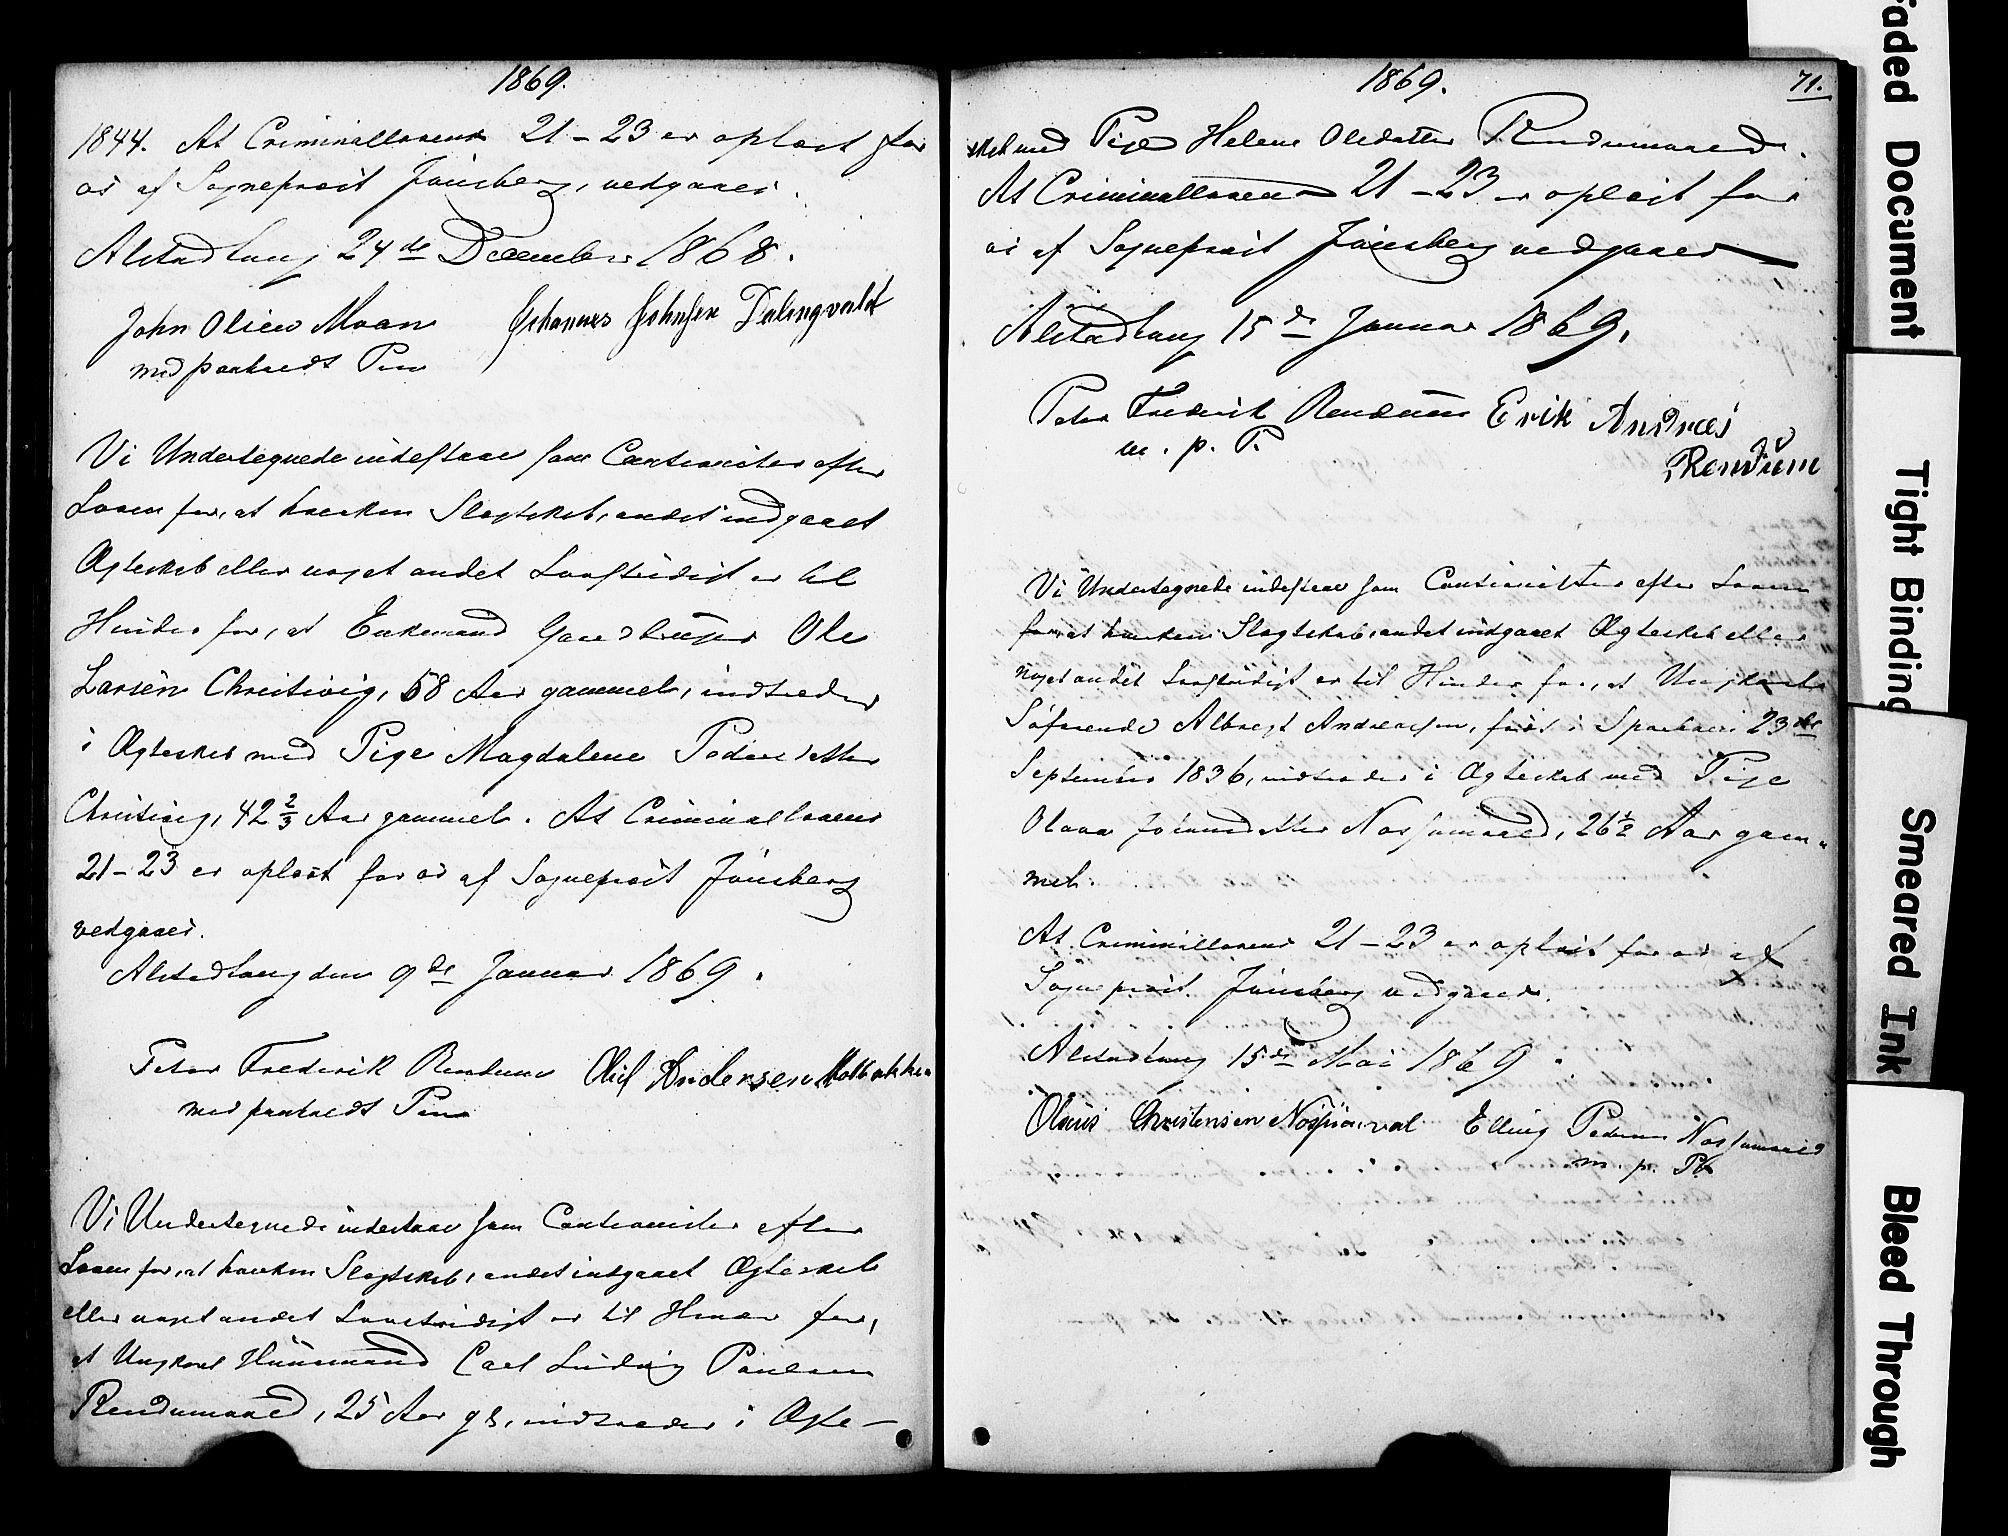 1869.
1844. At Criminallovens 21-23 er oplæst for
os af Sogneprest Jőnsberg, vedgaaes.
Alstadhaug 24de December 1868.
John Olsen Moan Johannes Johnsen Dalingvald
med paaholdt Pen
Vi Undertegnede indestaae som Cautionister efter
Loven for, at hverken Slagtskab, andet indgaaet
Ægteskab eller noget andet Lovstridigt er til
Hinder for, at Enkemand Gaardbruger Ole
Larsen Christivig, 58 Aar gammel, indtræder
i Ægteskab med Pige Magdalene Pedersdatter
Christivig, 42 2/3 Aar gammel. At Criminallovens
21-23 er oplæst for os af Sogneprest Jőnsberg
vedgaaes.
Alstadhaug den 9de Januar 1869.
Peter Frederik Rendum Oluf Andersen Molbakken
med paaholdt Pen
Vi Undertegnede indestaae som Cautionister efter
Loven for, at hverken Slagtskab, andet indgaaet Ægteskab
eller noget andet Lovstridigt er til Hinder for,
at Ungkarl Huusmand Carl Ludvig Paulsen
Rendumaaed, 25 Aar gl, indtræder i Ægte-
1869. 71.
skab med Pige Helene Olsdatter Rendumaaed.
At Criminallovens 21-23 er oplæst for
os af Sogneprest Jőnsberg vedgaaes
Alstadhaug 15de Januar 1869.
Peter Frederik Rendum Erik Andreas
m. p. P. Rendum
Vi Undertegnede indestaae som Cautionister efter Loven
for, at hverken Slagtskab, andet indgaaet Ægteskab eller
noget andet Lovstridigt er til Hinder for, at Ungkarl
Søfarende Albregt Andreassen, født i 23de
September 1836, indtræder i Ægteskab med Pige
Olava Johnsdatter Nossumaaed, 26 1/2 Aar gam-
mel.
At Criminallovens 21-23 er oplæst for os af
Sogneprest Jőnsberg vedgaaes.
Alstadhaug 15de Mai 1869.
Olaus Christensen Elling Pedersen Nossumaaed
m. p. P.
Faded Document
Tight Binding
Smeared Ink
Bleed Through